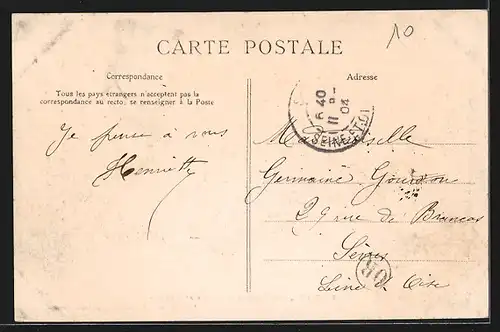 10
CARTE POSTALE
Correspondance
Tous les pays étrangers n'acceptent pas la
correspondance au recto, se renseigner à la Poste
Je pense à vous
Henriette
Adresse
6 40
11
04
SEINE-ET-OI
Mademoiselle
Germaine Gourdon
29 rue de Brancas
Sèvres
Seine & Oise
OR